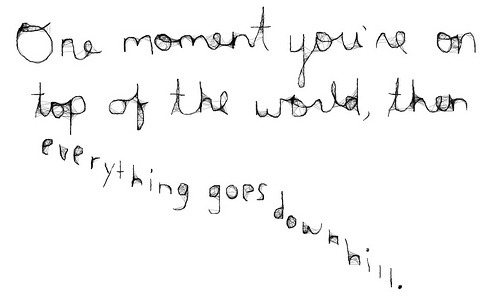 One moment you're on
top of the world, then
everything goes downhill.